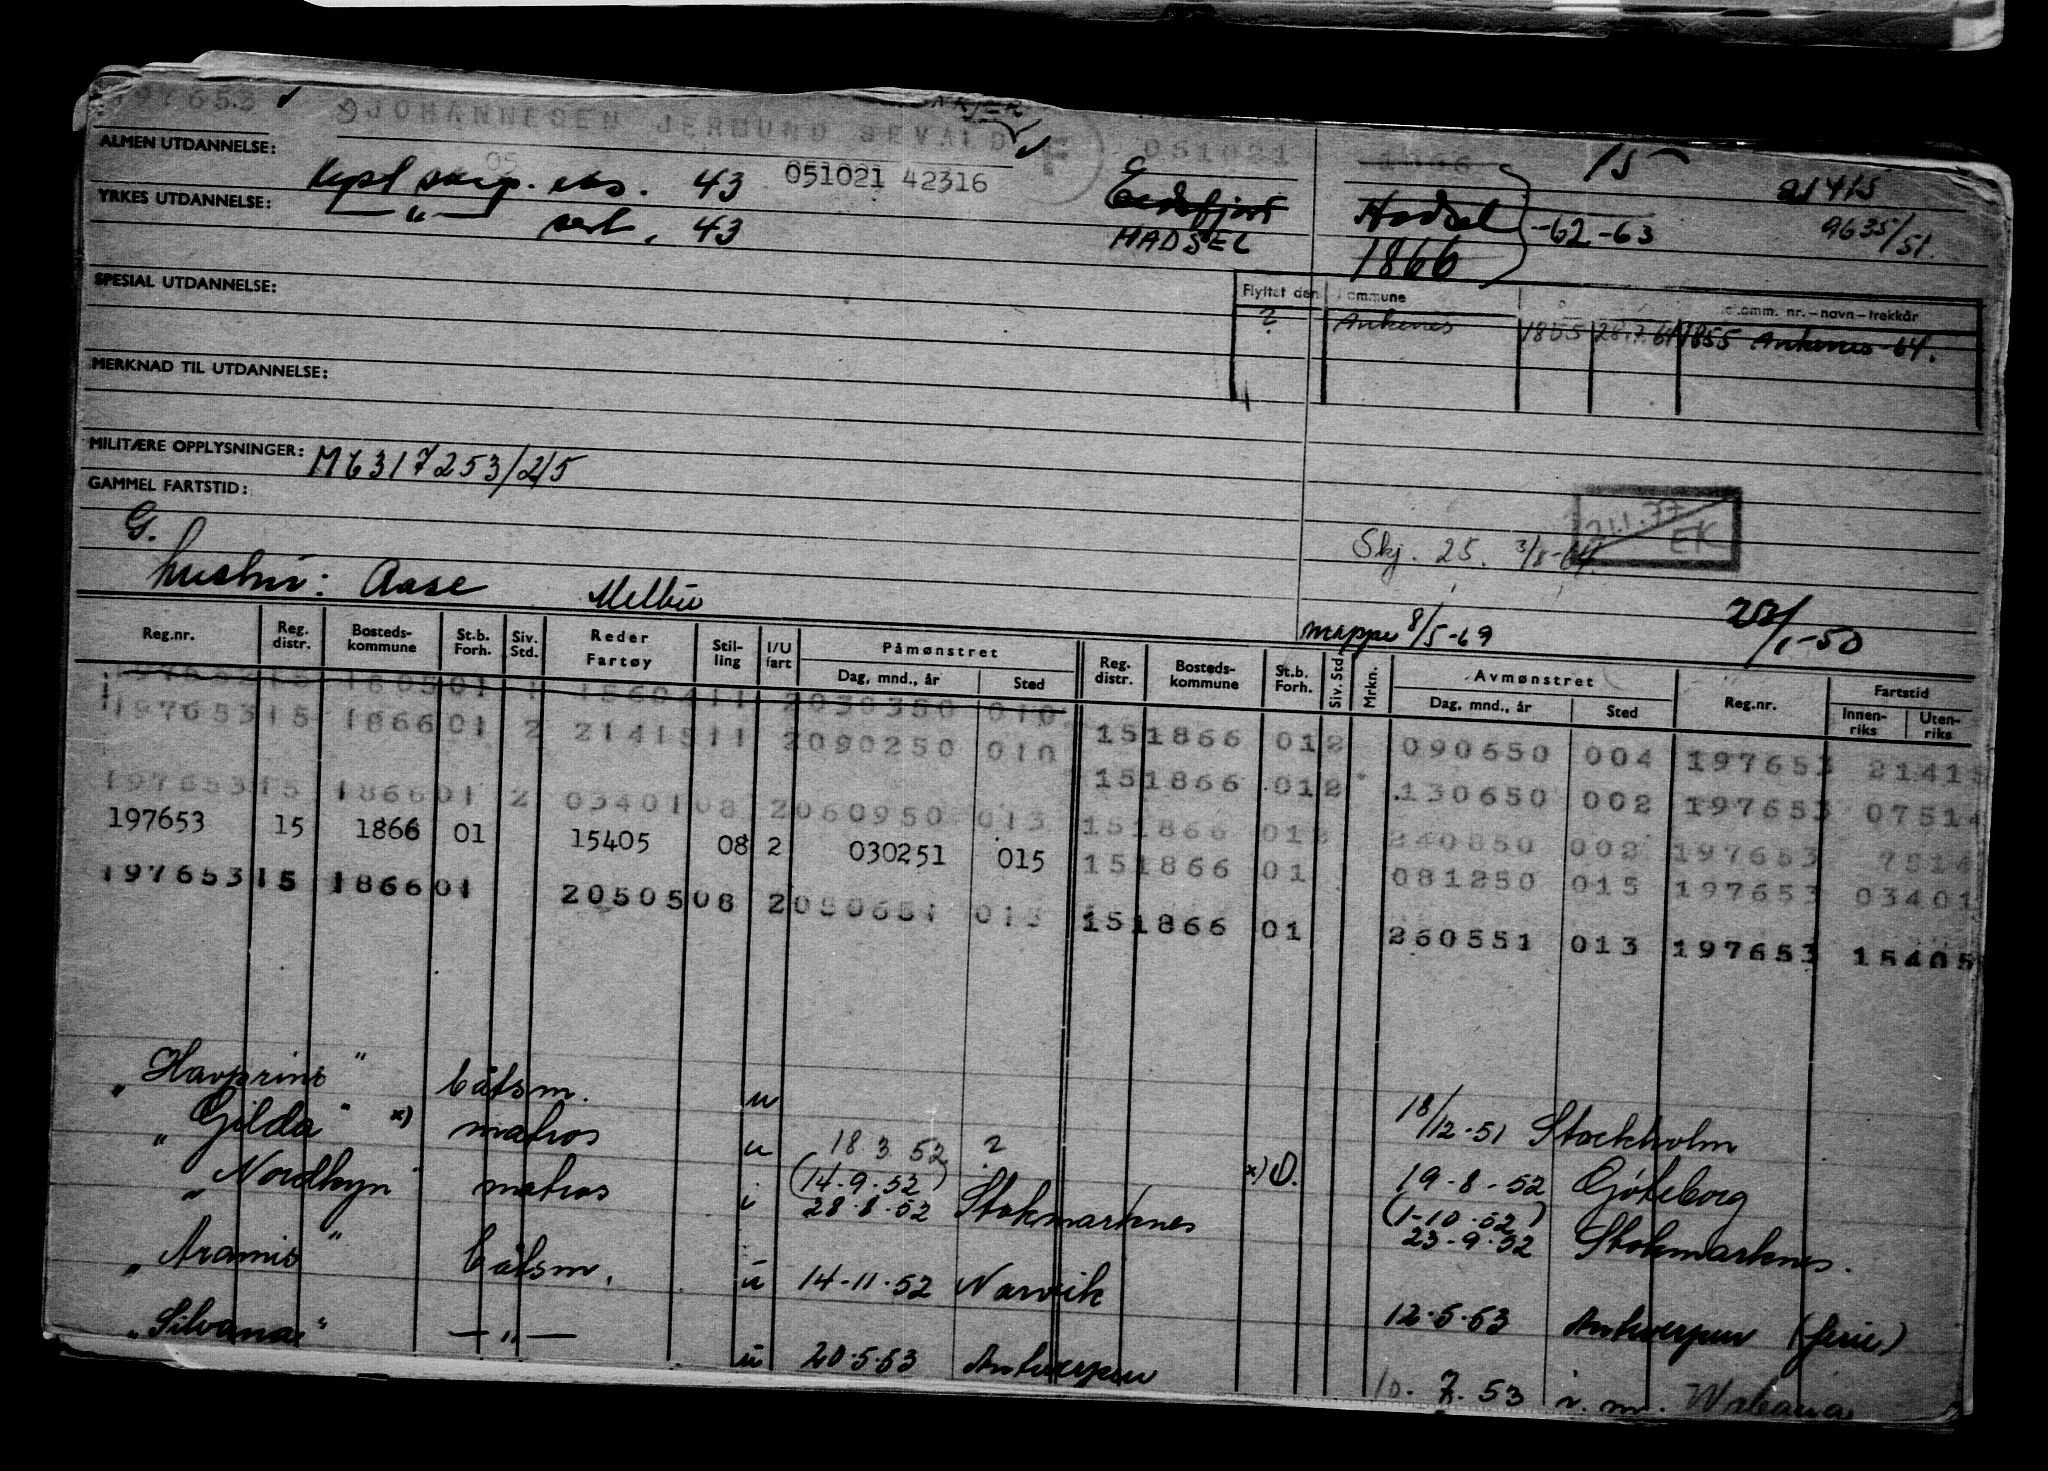 197653 JOHANNESEN JERMUND SEVALD F 051021 15 21415
ALMEN UTDANNELSE: Kyst skip. eks. 43 051021 42316 Eidsfjord Hadsel -62-63 9635/51.
YRKES UTDANNELSE: — " — sert. 43 HADSEL 1866
SPESIAL UTDANNELSE:
Flyttet den Kommune omm. nr. – navn – trekkår
? Ankenes 1855 28.7.61 1855 Ankenes -64.
MERKNAD TIL UTDANNELSE:
MILITÆRE OPPLYSNINGER: M6317253/2/5
GAMMEL FARTSTID:
G. Skj. 25. 3/8-64. 21.1.77 EK
hustru: Aase Melbu
mappe 8/5-69 23/1-50
Reg.nr. Reg. distr. Bosteds- kommune St.b. Forh. Siv. Std. Reder Fartøy Stil- ling I/U fart Påmønstret Dag, mnd., år Sted Reg. distr. Bosteds- kommune St.b. Forh. Siv. Std. Mrkn. Avmønstret Dag, mnd., år Sted Reg.nr. Fartstid Innen- riks Uten- riks
197653 15 1866 01 2 21415 11 2 090250 010 15 1866 01 2 090650 004 197653 21415
15 1866 01 2 130650 002 197653 07514
197653 15 1866 01 2 03401 08 2 060950 013 15 1866 01 2 240850 002 197653 7514
197653 15 1866 01 15405 08 2 030251 015 15 1866 01 081250 015 197653 03401
197653 15 1866 01 20505 08 2 050651 013 15 1866 01 260551 013 197653 15405
"Havprins" båtsm. u 18/12-51 Stockholm
"Gilda" x) matros u 18 3 52 ? x) 19-8-52 Göteborg
"Nordkyn" matros i (14-9-52) 28-8-52 Stokmarknes (1-10-52) 23-9-52 Stokmarknes.
"Aramis" båtsm. u 14-11-52 Narvik 12-5-53 Antwerpen (ferie)
"Silvana" — " — u 20-5-53 Antwerpen 10-7-53